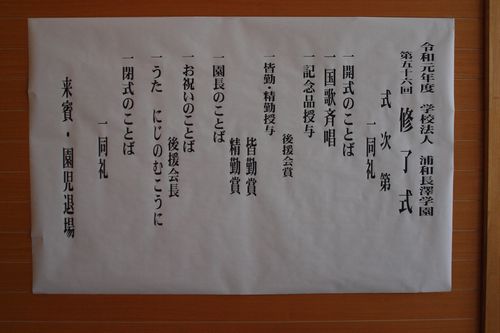 令和元年度 学校法人 浦和長澤学園
第五十六回 修了式
式次第
一同礼
一開式のことば
一国歌斉唱
一記念品授与
後援会賞
一皆勤・精勤授与
皆勤賞
精勤賞
一園長のことば
一お祝いのことば
後援会長
一うた にじのむこうに
一閉式のことば
一同礼
来賓・園児退場